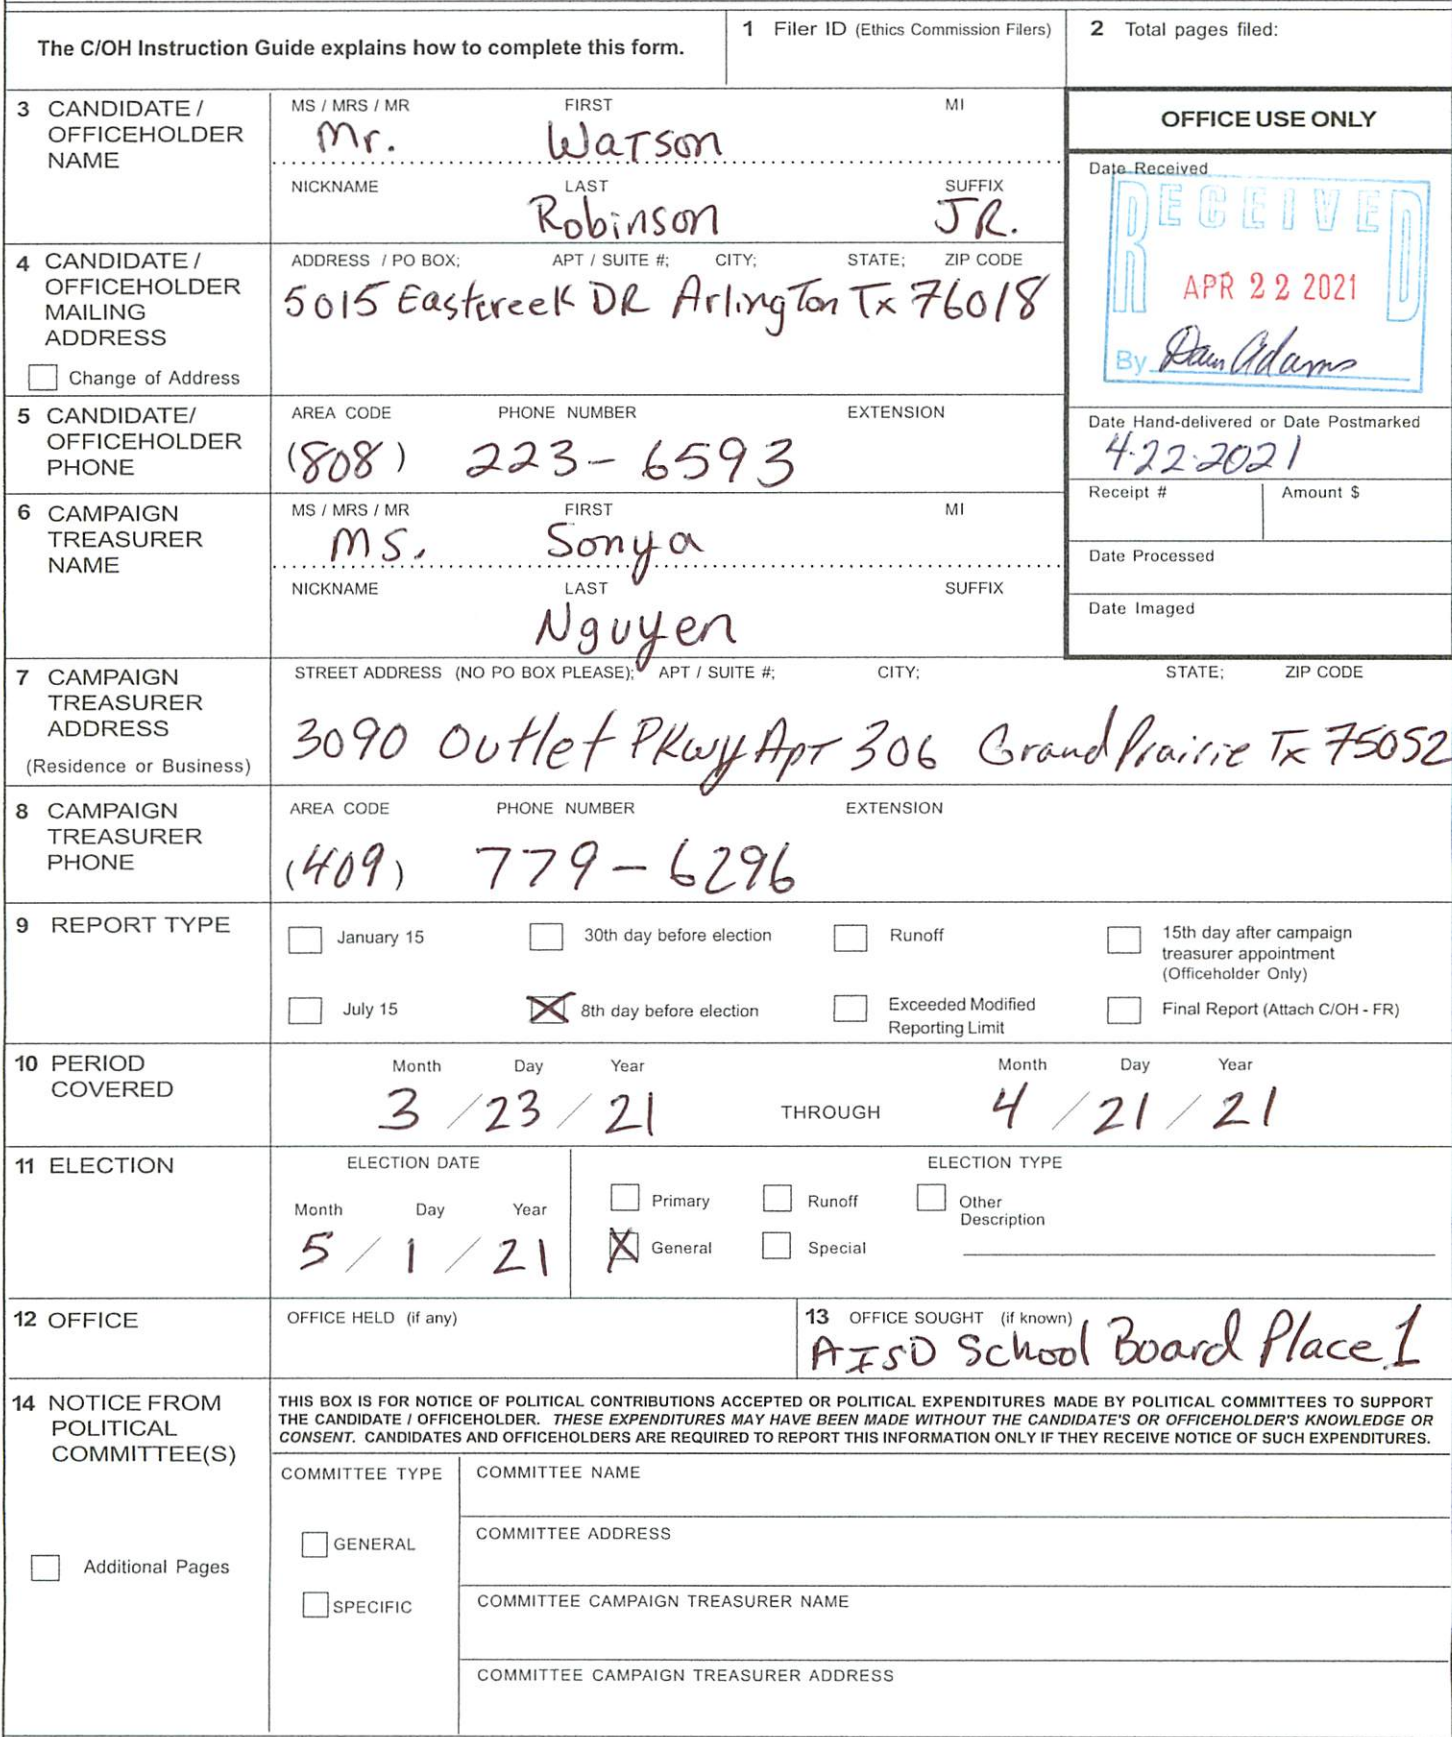 The C/OH Instruction Guide explains how to complete this form.
1 Filer ID (Ethics Commission Filers)
2 Total pages filed:
3 CANDIDATE / OFFICEHOLDER NAME
MS / MRS / MR FIRST MI
Mr. Watson
NICKNAME LAST SUFFIX
Robinson JR.
OFFICE USE ONLY
Date Received
RECEIVED
APR 22 2021
By Dawn Adams
4 CANDIDATE / OFFICEHOLDER MAILING ADDRESS
Change of Address
ADDRESS / PO BOX; APT / SUITE #; CITY; STATE; ZIP CODE
5015 Eastcreek DR Arlington Tx 76018
5 CANDIDATE/ OFFICEHOLDER PHONE
AREA CODE PHONE NUMBER EXTENSION
(808) 223-6593
Date Hand-delivered or Date Postmarked
4-22-2021
Receipt # Amount $
Date Processed
Date Imaged
6 CAMPAIGN TREASURER NAME
MS / MRS / MR FIRST MI
MS. Sonya
NICKNAME LAST SUFFIX
Nguyen
7 CAMPAIGN TREASURER ADDRESS
(Residence or Business)
STREET ADDRESS (NO PO BOX PLEASE); APT / SUITE #; CITY; STATE; ZIP CODE
3090 Outlet PKwy Apt 306 Grand Prairie Tx 75052
8 CAMPAIGN TREASURER PHONE
AREA CODE PHONE NUMBER EXTENSION
(409) 779-6296
9 REPORT TYPE
January 15
30th day before election
Runoff
15th day after campaign treasurer appointment (Officeholder Only)
July 15
8th day before election
Exceeded Modified Reporting Limit
Final Report (Attach C/OH - FR)
10 PERIOD COVERED
Month Day Year Month Day Year
3 / 23 / 21 THROUGH 4 / 21 / 21
11 ELECTION
ELECTION DATE
Month Day Year
5 / 1 / 21
ELECTION TYPE
Primary Runoff Other Description
General Special
12 OFFICE
OFFICE HELD (if any)
13 OFFICE SOUGHT (if known)
AISD School Board Place 1
14 NOTICE FROM POLITICAL COMMITTEE(S)
Additional Pages
THIS BOX IS FOR NOTICE OF POLITICAL CONTRIBUTIONS ACCEPTED OR POLITICAL EXPENDITURES MADE BY POLITICAL COMMITTEES TO SUPPORT
THE CANDIDATE / OFFICEHOLDER. THESE EXPENDITURES MAY HAVE BEEN MADE WITHOUT THE CANDIDATE'S OR OFFICEHOLDER'S KNOWLEDGE OR
CONSENT. CANDIDATES AND OFFICEHOLDERS ARE REQUIRED TO REPORT THIS INFORMATION ONLY IF THEY RECEIVE NOTICE OF SUCH EXPENDITURES.
COMMITTEE TYPE
GENERAL
SPECIFIC
COMMITTEE NAME
COMMITTEE ADDRESS
COMMITTEE CAMPAIGN TREASURER NAME
COMMITTEE CAMPAIGN TREASURER ADDRESS